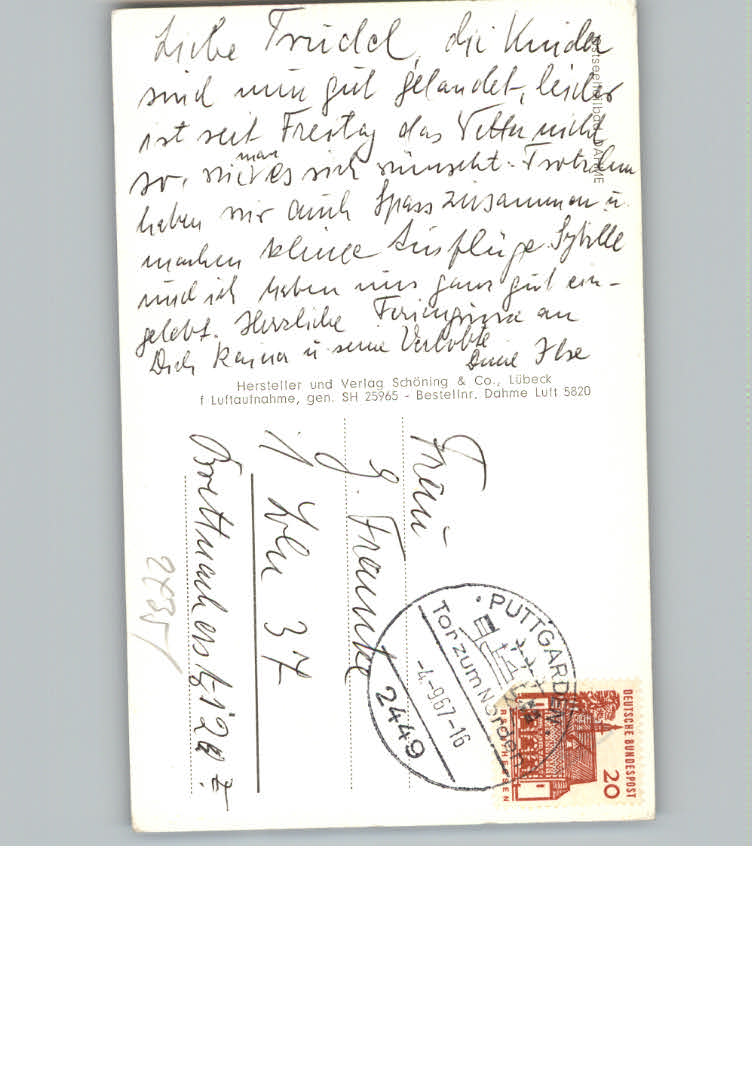 Liebe Trudel, die Kinder
sind nun gut gelandet, leider
ist seit Freitag das Wetter nicht
so, wie man es sich wünscht. Trotzdem
haben wir auch Spass zusammen u.
machen kleine Ausflüge. Sybille
und ich haben uns ganz gut ein-
gelebt. Herzliche Feriengrüsse an
Dich, Rainer u. seine Verlobte
Deine Ilse
Ostseeheilbad DAHME
Hersteller und Verlag Schöning & Co., Lübeck
f Luftaufnahme, gen. SH 25965 - Bestellnr. Dahme Luft 5820
Frau
G. Franke
1 Bln 37
PUTTGARDEN
Tor zum Norden
-4-967-16
2449
DEUTSCHE BUNDESPOST
20
HESSEN